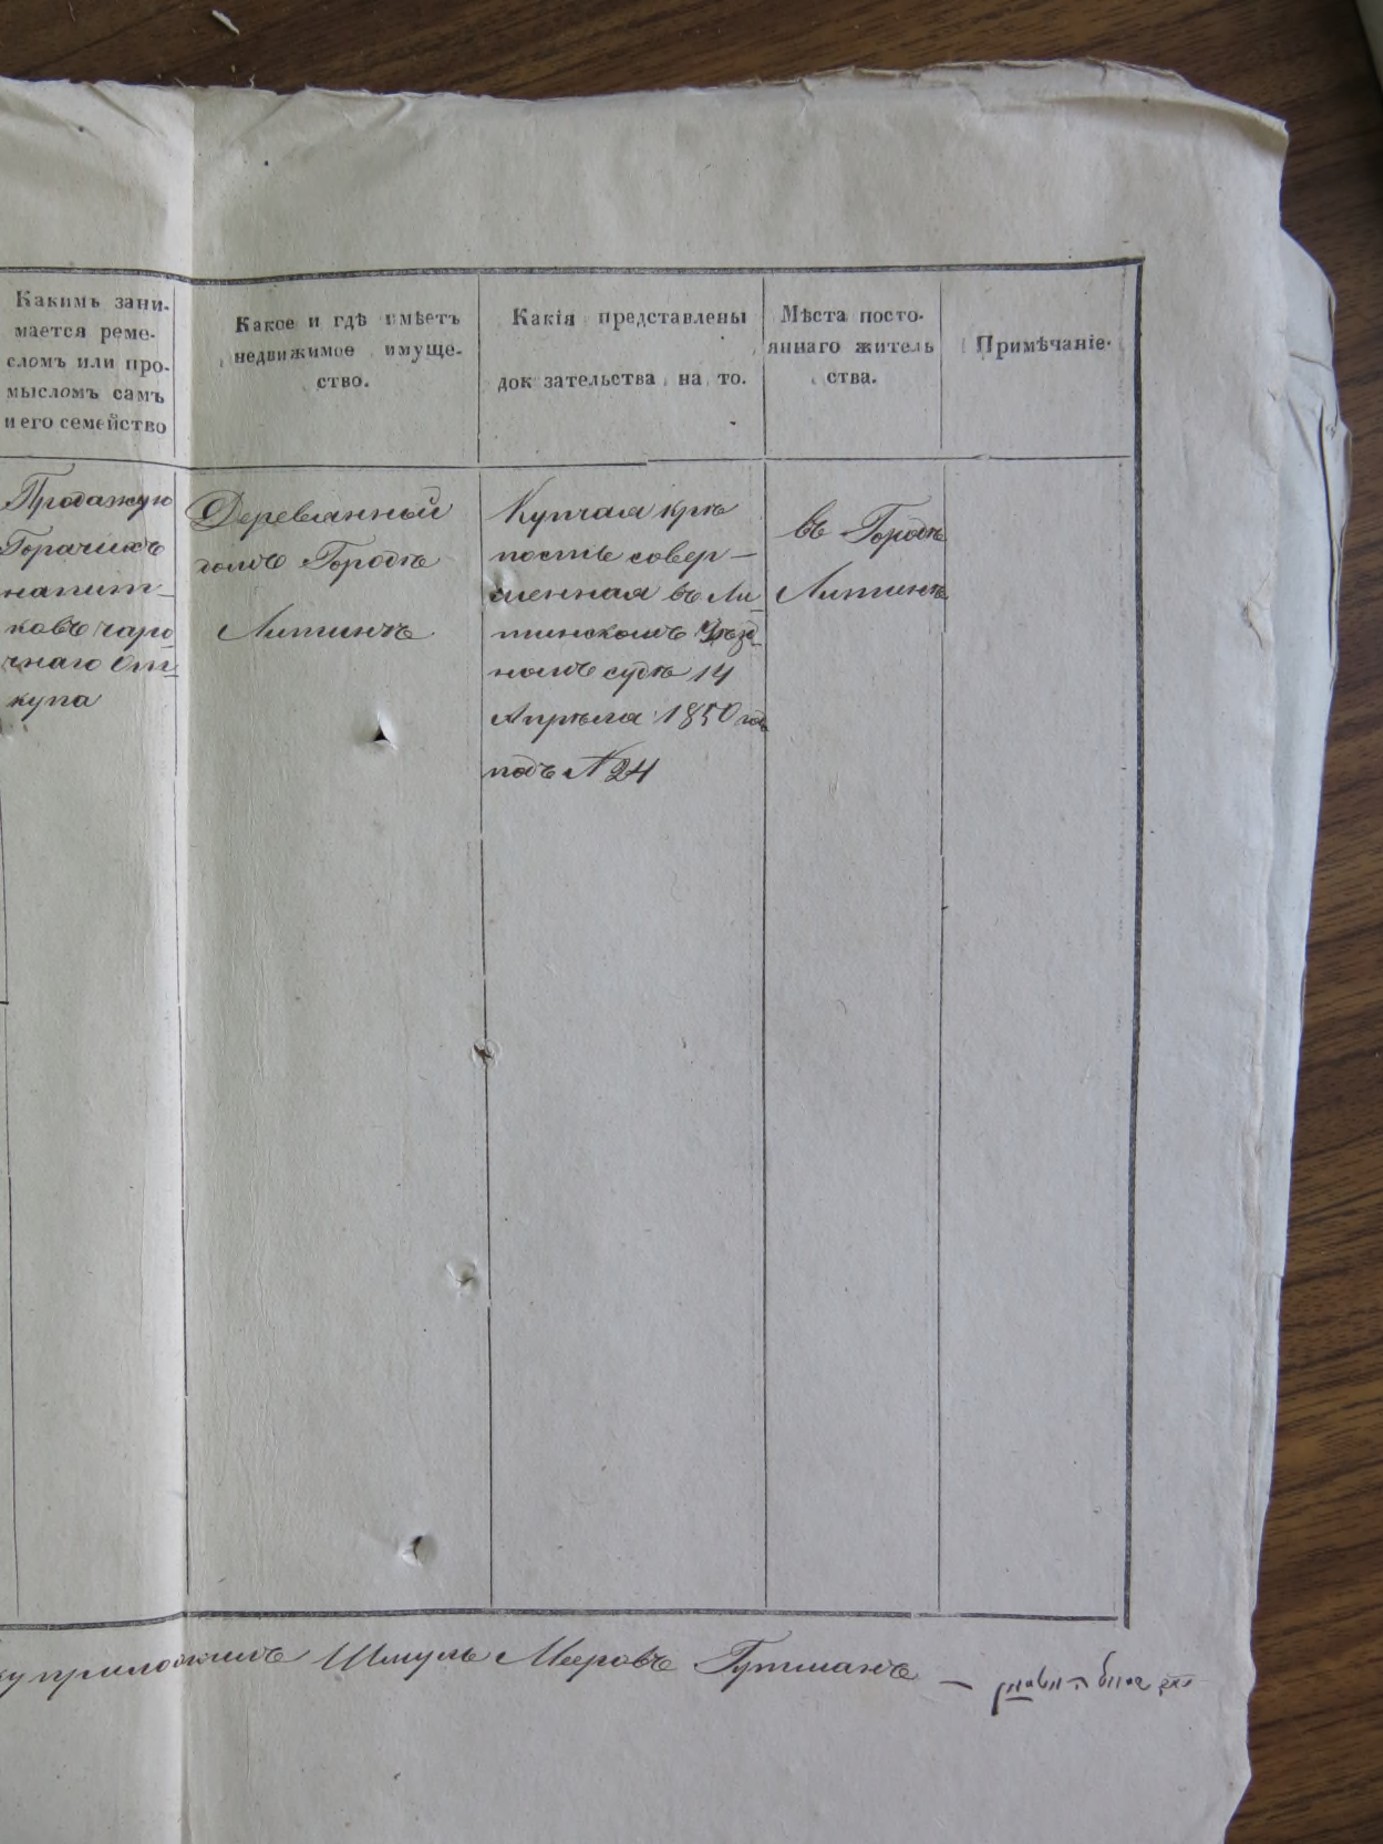 Какимъ зани-
мается реме-
сломъ или про-
мысломъ самъ
и его семейство
Какое и гдѣ имѣетъ
недвижимое имуще-
ство.
Какія представлены
док зательства на то.
Мѣста посто-
яннаго житель
ства.
Примѣчаніе.
Продажую
Горачихъ
напит-
ковъ чаро
чнаго От-
купа
Деревянный
домъ Городѣ
Литинѣ
Купчая крѣ
пость совер-
шенная въ Ли-
тинскомъ Уѣзд-
номъ судѣ 14
Апрѣля 1850 год
подъ N 24
въ Городѣ
Литинѣ
ку приложилъ Шмуль Мееровъ Гутманъ —